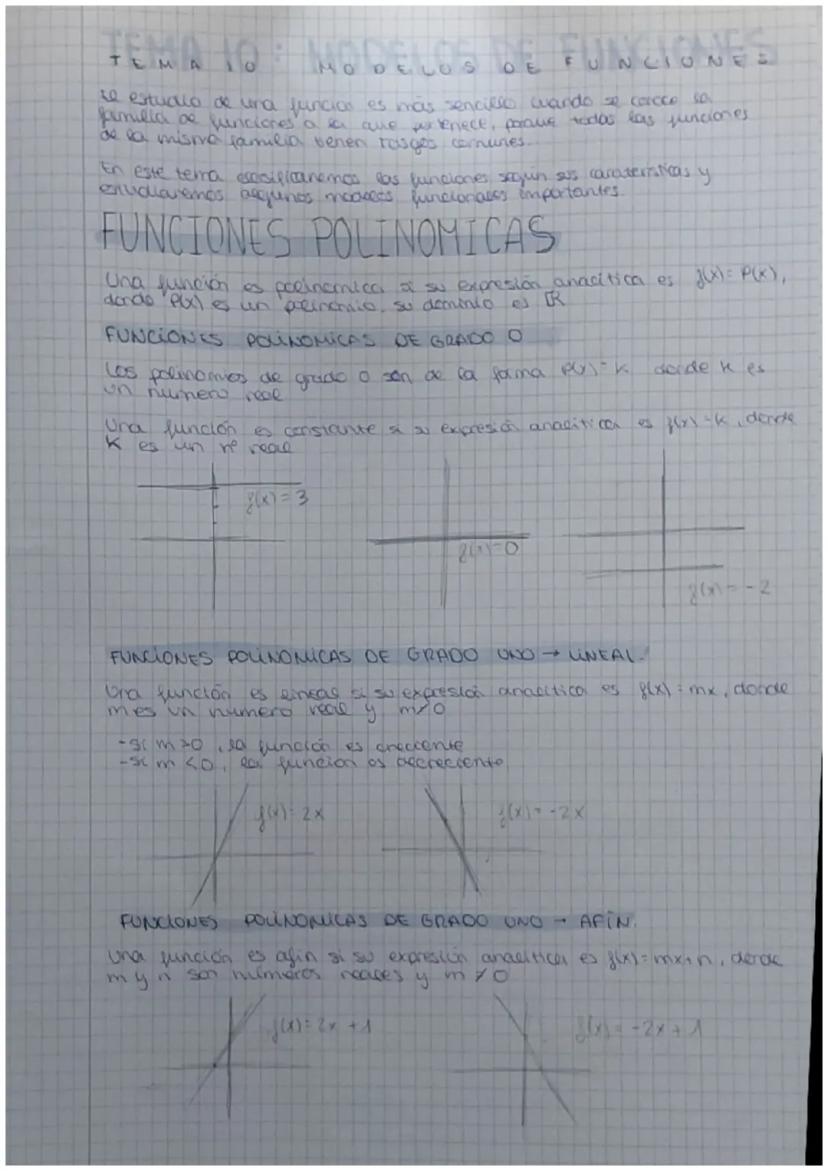 TEMA 10: MODELOS DE FUNCIONES
El estudio de una función es más sencillo cuando se conoce la
familia de funciones a la que pertenece, porque todas las funciones
de la misma familia tienen rasgos comunes.
En este tema clasificaremos las funciones según sus características y
estudiaremos algunos modelos funcionales importantes.
FUNCIONES POLINOMICAS
Una función es polinomica si su expresión analítica es f(x)=P(x),
donde P(x) es un polinomio, su dominio es ℝ
FUNCIONES POLINOMICAS DE GRADO 0
Los polinomios de grado 0 son de la forma P(x)=K donde K es
un numero real
Una función es constante si su expresión analítica es f(x)=K, donde
K es un nº real
f(x)=3
f(x)=0
f(x)=-2
FUNCIONES POLINOMICAS DE GRADO UNO → LINEAL.
Una función es lineal si su expresión analítica es f(x)=mx, donde
m es un numero real y m≠0
-si m>0, la función es creciente
-si m<0, la función es decreciente
f(x)=2x
f(x)=-2x
FUNCIONES POLINOMICAS DE GRADO UNO → AFÍN.
Una función es afín si su expresión analítica es f(x)=mx+n, donde
m y n son números reales y m≠0
f(x)=2x+1
f(x)=-2x+1